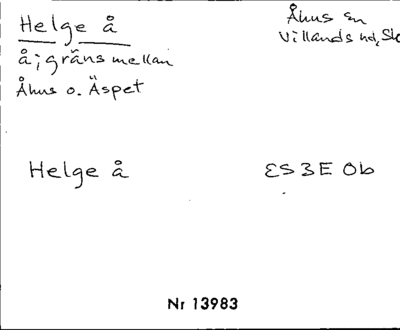 Helge å
Åhus sn
Villands hd, Sk
å; gräns mellan
Åhus o. Äspet
Helge å
ES 3E Ob
Nr 13983